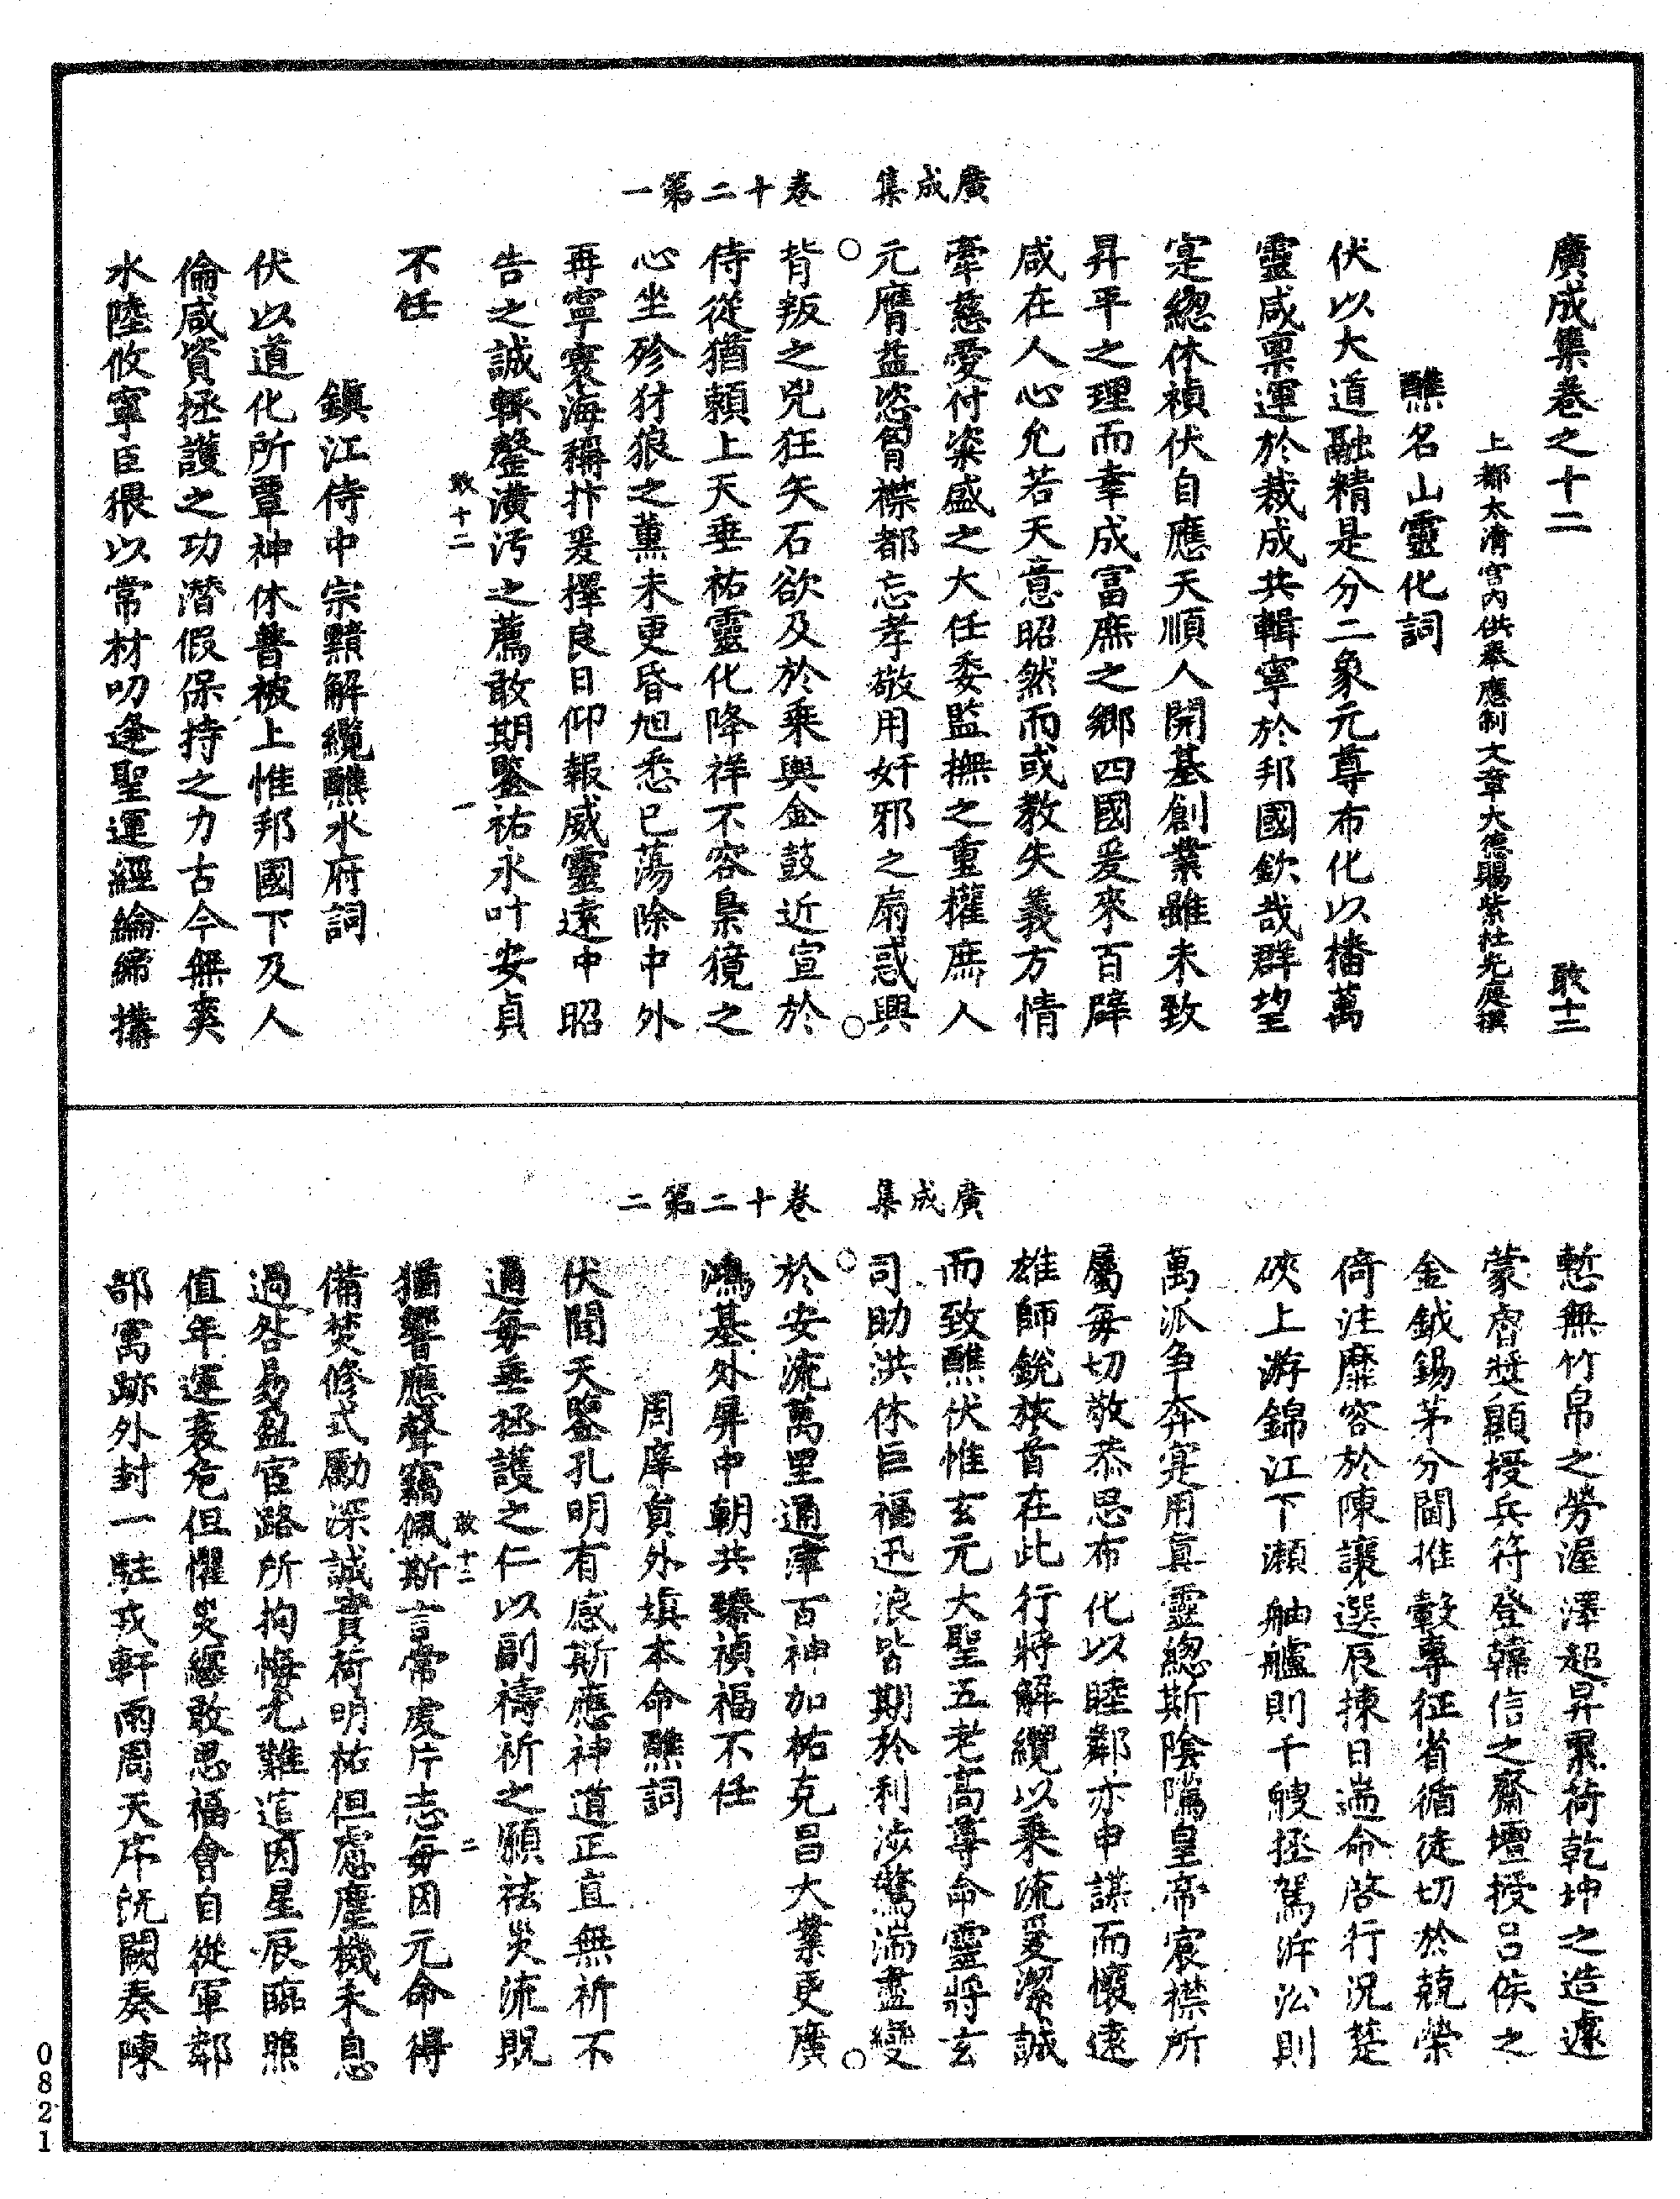 廣成集　卷十二第一
廣成集卷之十二　敢十二
上都太清宮內供奉應制文章大德賜紫杜光庭撰
醮名山靈化詞
伏以大道融精是分二象元尊布化以播萬
靈咸稟運於裁成共輯寧於邦國欽哉群望
寔緫休禎伏自應天順人開基創業雖未致
昇平之理而幸成富庶之鄉四國爰來百辟
咸在人心允若天意昭然而或教失義方情
牽慈愛付粢盛之大任委監撫之重權庶人
元膺益恣胷襟都忘孝敬用奸邪之扇惑興
背叛之兇狂矢石欲及於乘輿金鼓近宣於
侍從猶賴上天垂祐靈化降祥不容梟獍之
心坐殄犲狼之薰未更昏旭悉已蕩除中外
再寧寰海稱抃爰擇良日仰報威靈遠中昭
告之誠輒罄潢汚之薦敢期鑒祐永叶安貞
敢十二　一
不任
鎮江侍中宗黯解纜醮水府詞
伏以道化所覃神休普被上惟邦國下及人
倫咸資拯護之功潛假保持之力古今無爽
水陸攸寧臣猥以常材叨逢聖運經綸締搆
廣成集　卷十二第二
慙無竹帛之勞渥澤超昇累荷乾坤之造遽
蒙睿獎顯授兵符登韓信之齋壇授呂侯之
金鉞錫茅分閫推轂專征省循徒切於兢榮
倚注靡容於陳讓選辰揀日耑命啓行況楚
硤上游錦江下瀨舳艫則千艘拯駕浒㳂則
萬派争奔寔用真靈緫斯陰隲皇帝宸襟所
屬每切敬恭思布化以睦鄰亦申謀而懷遠
雄師銳旅首在此行將解纜以乘流爰潔誠
而致醮伏惟玄元大聖五老高尊命靈將玄
司助洪休巨福迅浪皆期於利涉驚湍盡變
於安流萬里通津百神加祐克昌大業更廣
鴻基外屏中朝共臻禎福不任
周庠員外填本命醮詞
伏聞天鑒孔明有感斯應神道正直無祈不
通每垂拯護之仁以副禱祈之願袪災流貺
敢十二　二
猶響應聲竊佩斯言常虔片志每因元命得
備焚修式勵深誠賓荷明祐但慮塵機未息
過咎易盈宦路所拘悔尤難逭因星辰臨照
值年運衰危但懼災纏敢思福會自從軍鄰
部寓跡外封一駐戎軒兩周天序旣闕奏陳
0821